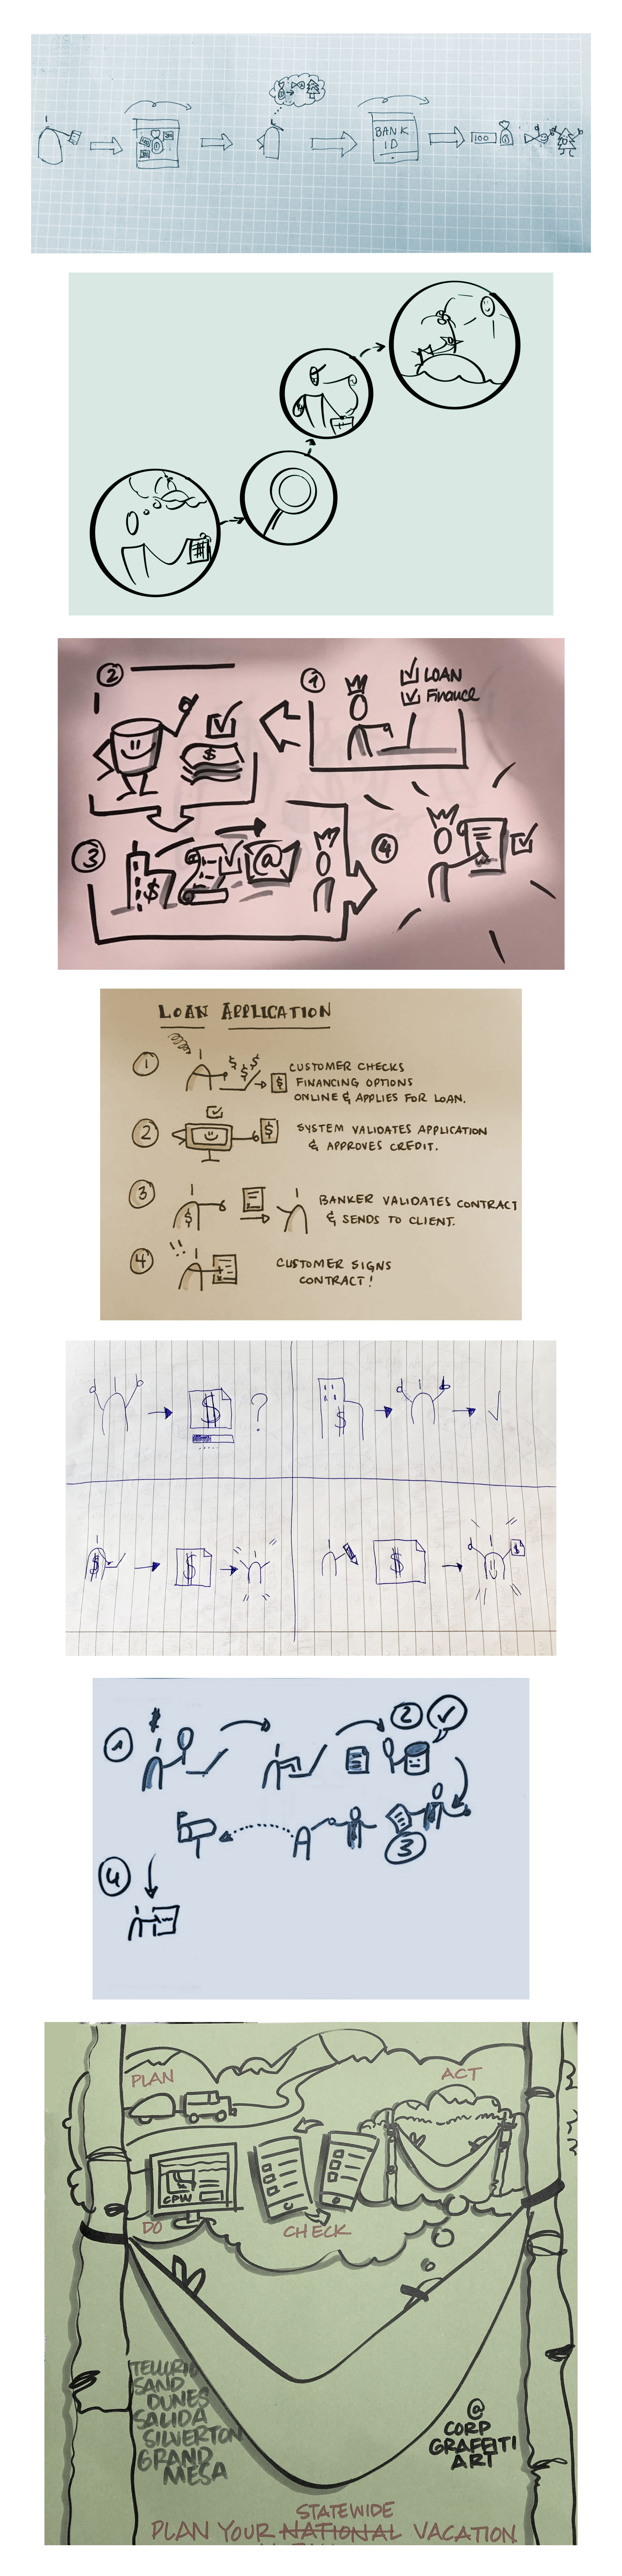 BANK
ID
100
2
1
LOAN
Finance
$
3
$
@
4
LOAN APPLICATION
1
$ $ $
$
CUSTOMER CHECKS
FINANCING OPTIONS
ONLINE & APPLIES FOR LOAN.
2
$
SYSTEM VALIDATES APPLICATION
& APPROVES CREDIT.
3
$
BANKER VALIDATES CONTRACT
& SENDS TO CLIENT.
4
!!
CUSTOMER SIGNS
CONTRACT!
$
?
$
$
$
$
$
1
$
2
3
4
PLAN
ACT
CPW
DO
CHECK
SAND
DUNES
SALIDA
SILVERTON
GRAND
MESA
@
CORP
GRAFFITI
ART
STATEWIDE
PLAN YOUR NATIONAL VACATION